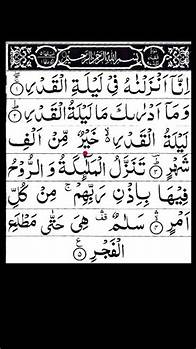 بِسْمِ اللّٰهِ الرَّحْمٰنِ الرَّحِيْمِ
اِنَّاۤ اَنْزَلْنٰهُ فِيْ لَيْلَةِ الْقَدْرِ ۚۖ ۝۱
وَمَاۤ اَدْرٰىكَ مَا لَيْلَةُ الْقَدْرِ ؕ ۝۲
لَيْلَةُ الْقَدْرِ ۙ خَيْرٌ مِّنْ اَلْفِ
شَهْرٍ ؕ ۝۳ تَنَزَّلُ الْمَلٰٓئِكَةُ وَ الرُّوْحُ
فِيْهَا بِاِذْنِ رَبِّهِمْ ۚ مِنْ كُلِّ
اَمْرٍ ۙ ۝۴ سَلٰمٌ ۛ هِيَ حَتّٰى مَطْلَعِ
الْفَجْرِ ۝۵